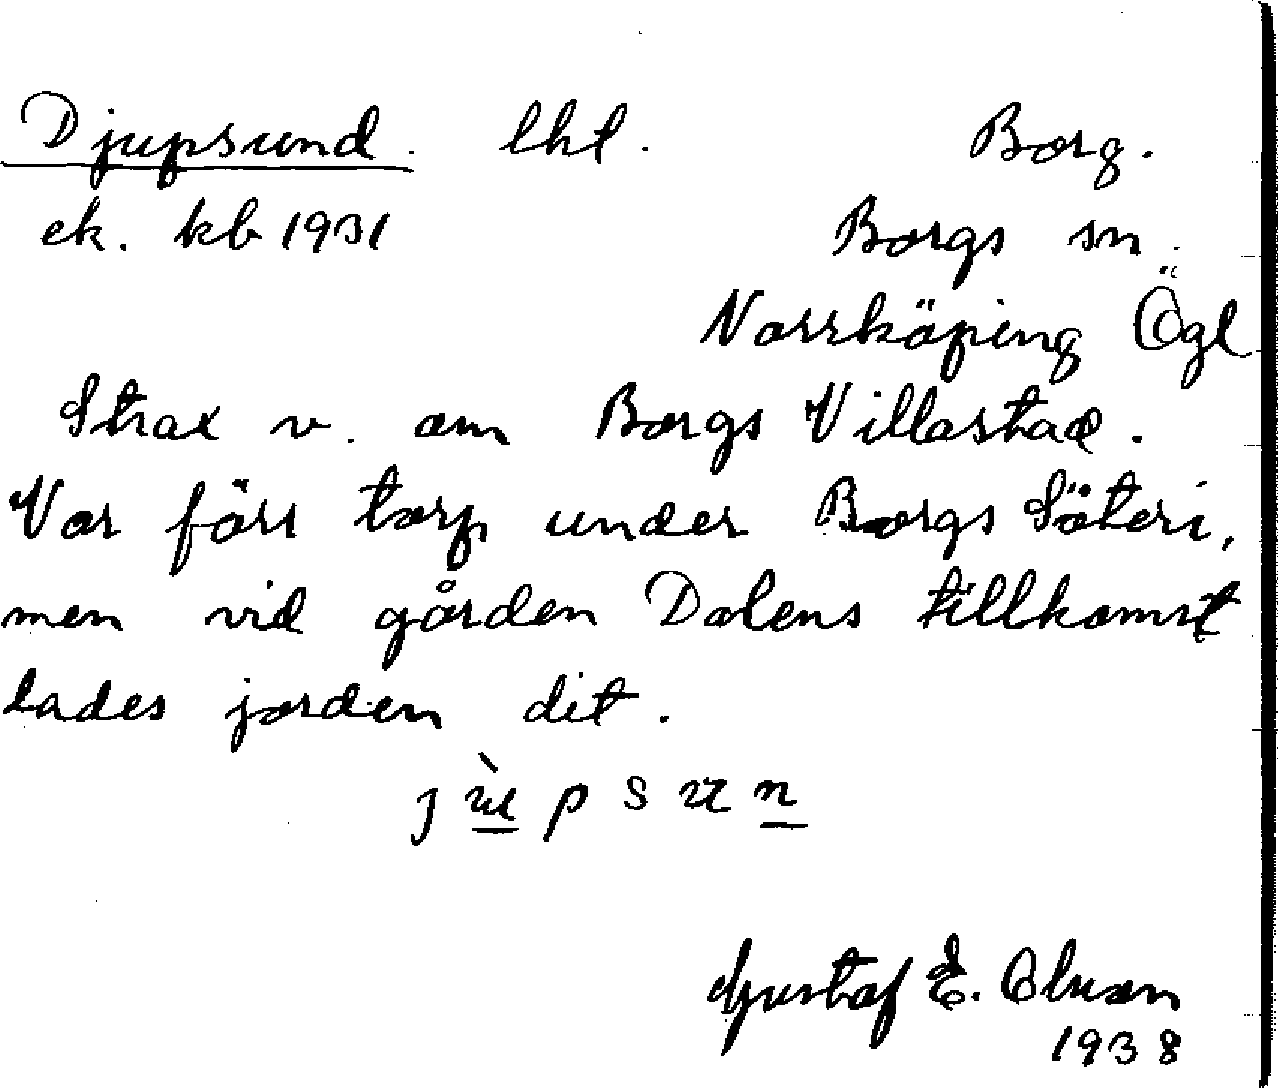 Djupsund. lht. Borg.
ek. kb 1931 Borgs sn.
Norrköping Ögl
Strax v. om Borgs Villastad.
Var förr torp under Borgs Säteri,
men vid gården Dalens tillkomst
lades jorden dit.
j ù p s u n
Gustaf E. Olsson
1938